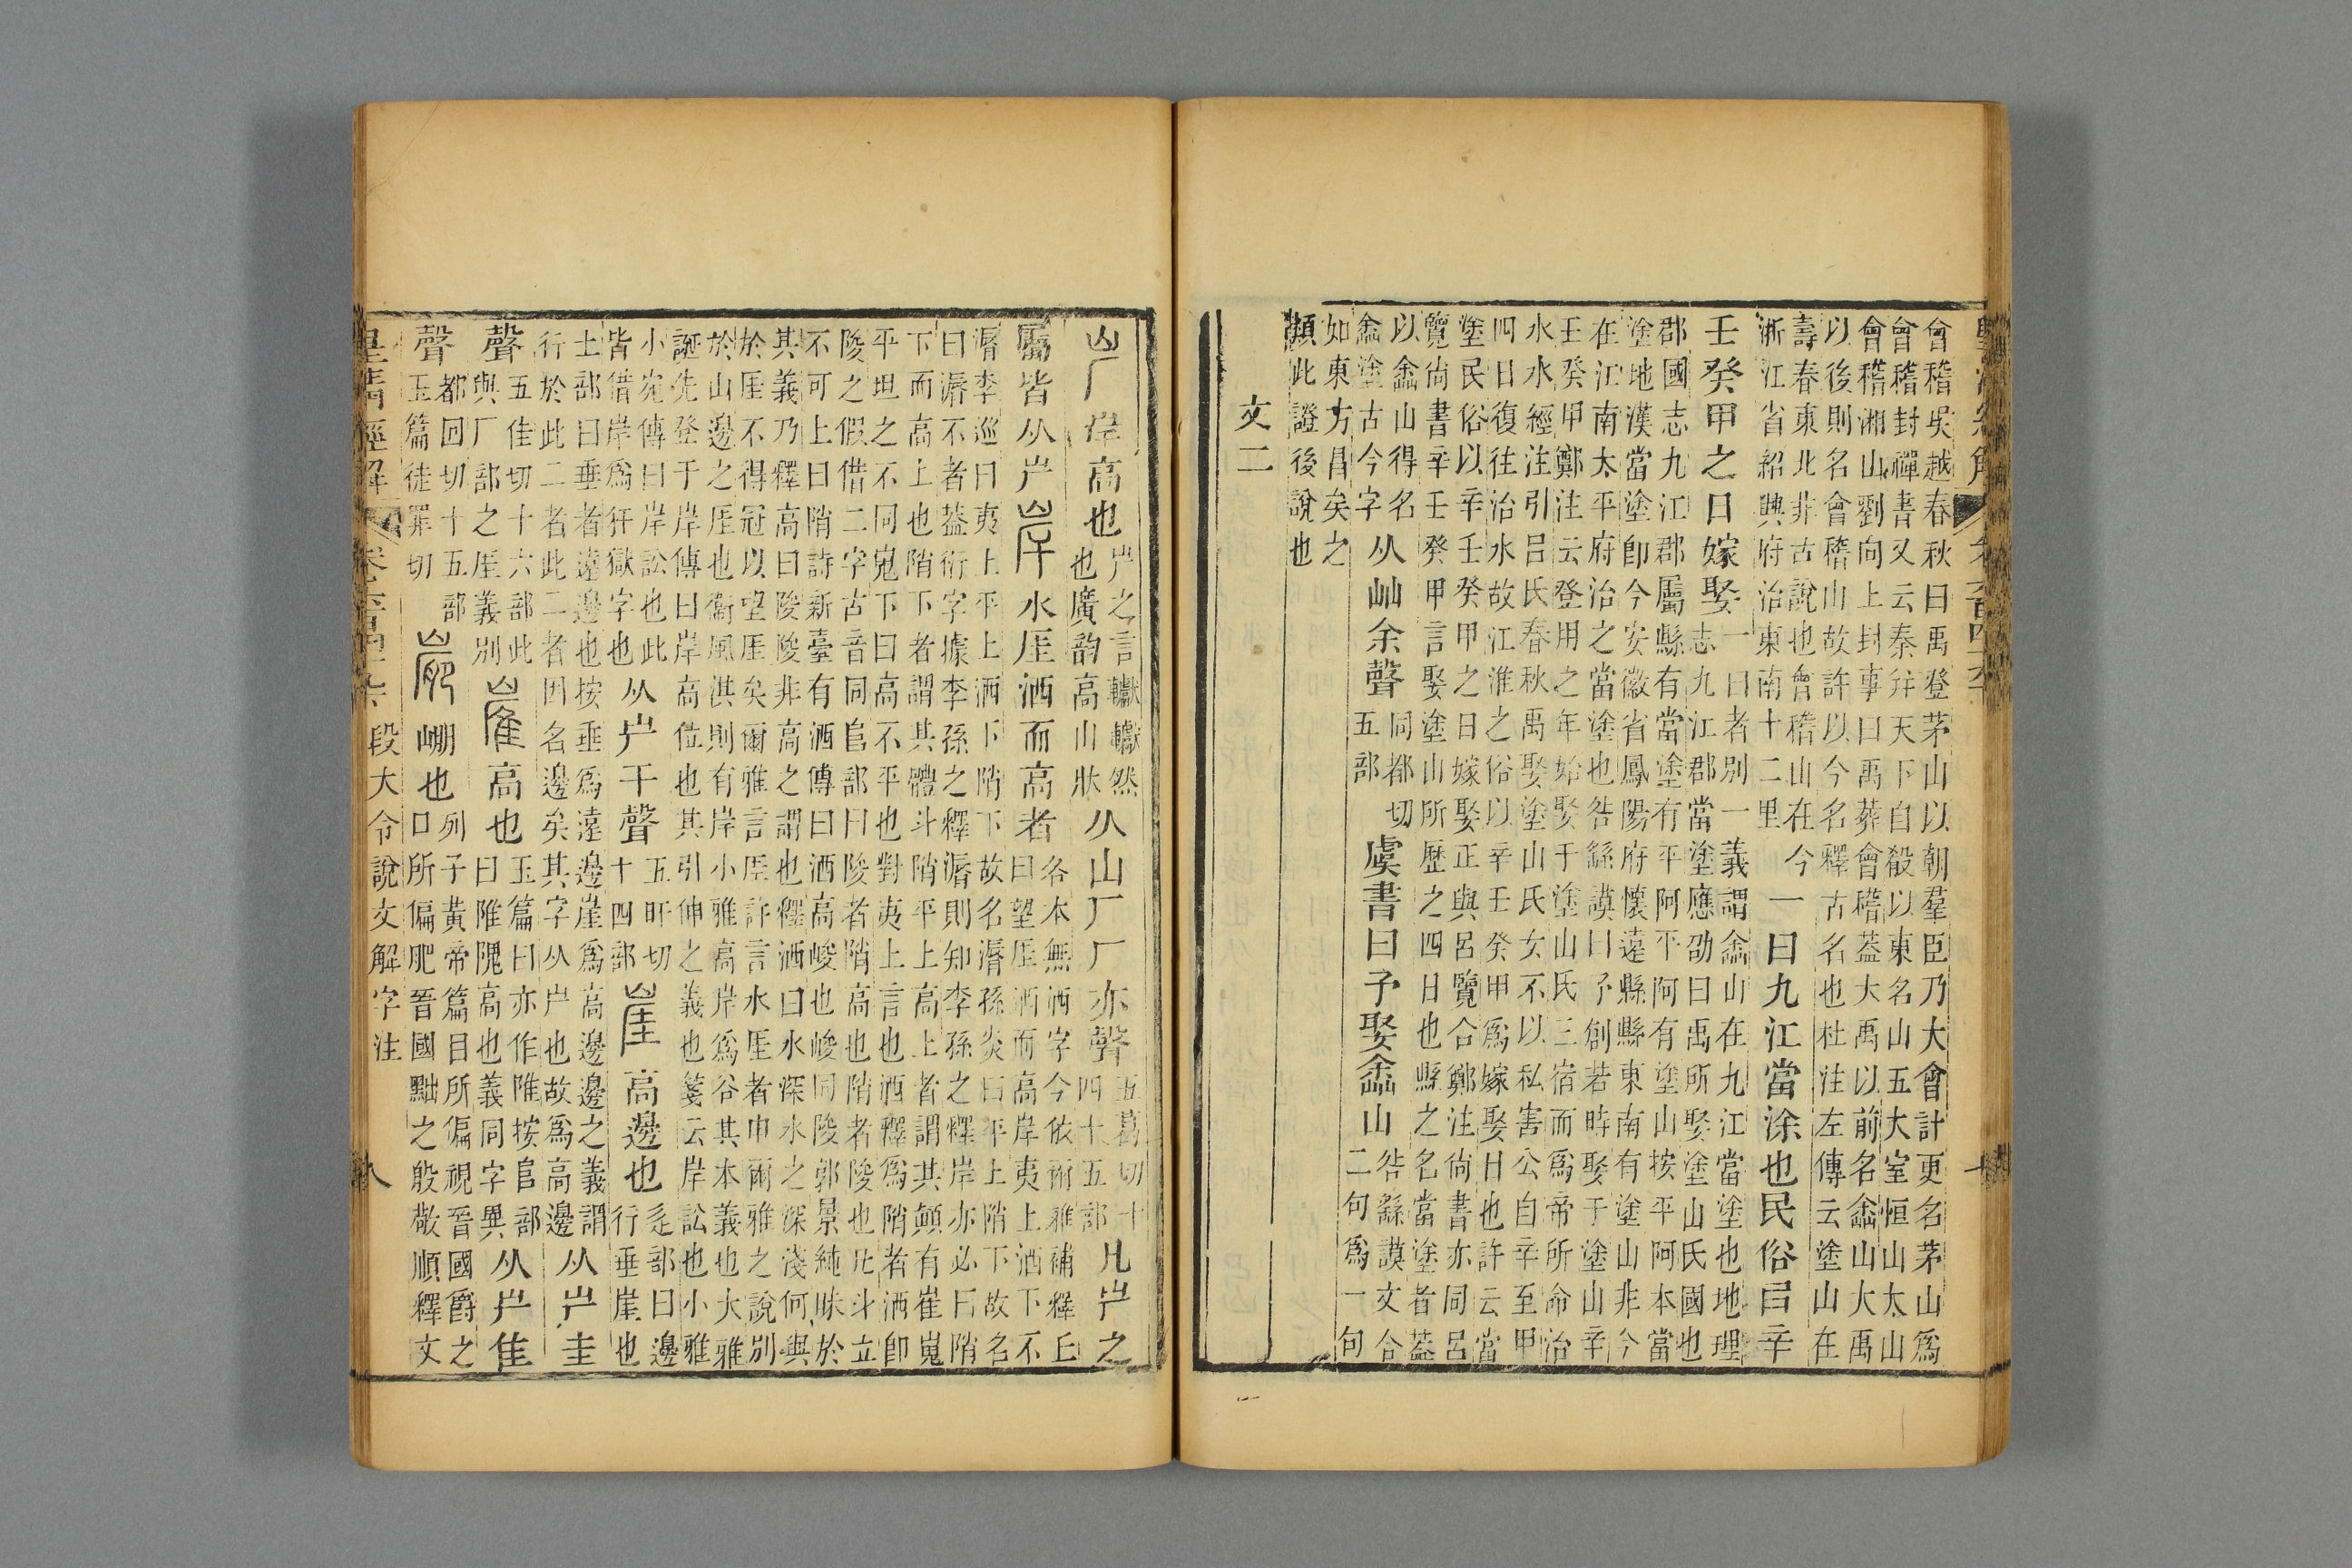 會稽吳越春秋曰禹登茅山以朝羣臣乃大會計更名茅山爲
會稽封禪書又云秦幷天下自殽以東名山五大室恒山太山
會稽湘山劉向上封事曰禹葬會稽葢大禹以前名嵞山大禹
以後則名會稽山故許以今名釋古名也杜注左傳云塗山在
壽春東北非古說也會稽山在今
浙江省紹興府治東南十二里
一曰九江當涂也民俗㠯辛
壬癸甲之日嫁娶
一曰者別一義謂嵞山在九江當塗也地理
志九江郡當塗應劭曰禹所娶塗山氏國也
郡國志九江郡屬縣有當塗有平阿平阿有塗山按平阿本當
塗地漢當塗卽今安徽省鳳陽府懷遠縣縣東南有塗山非今
在江南太平府治之當塗也咎繇謨曰予創若時娶于塗山辛
壬癸甲鄭注云登用之年始娶于塗山氏三宿而爲帝所命治
水水經注引呂氏春秋禹娶塗山氏女不以私害公自辛至甲
四日復往治水故江淮之俗以辛壬癸甲爲嫁娶日也許云當
塗民俗以辛壬癸甲之日嫁娶正與呂覽合鄭注尚書亦同呂
覽尚書辛壬癸甲言娶塗山所歷之四日也縣之名當塗者葢
以嵞山得名
嵞塗古今字
从屾余聲
同都切
五部
虞書曰予娶嵞山
咎繇謨文合
二句爲一句
如東方昌矣之
類此證後說也
文二
屵岸高也
屵之言巘巘然
也廣韵高山狀
从山厂厂亦聲
五葛切十
四十五部
凡屵之
屬皆从屵岸水厓洒而高者
各本無洒字今依爾雅補釋丘
曰望厓洒而高岸夷上洒下不
漘李巡曰夷上平上洒下陗下故名漘孫炎曰平上陗下故名
曰漘不者葢衍字據李孫之釋漘則知李孫之釋岸亦必曰陗
下而高上也陗下者謂其體斗陗平上高上者謂其顛有崔嵬
平坦之不同嵬下曰高不平也對夷上言也洒釋爲陗者洒卽
陵之假借二字古音同𨸏部曰陵者陗高也陗者陵也凡斗立
不可上曰陗詩新臺有洒傳曰洒高峻也峻同陵郭景純昧於
其義乃釋高曰陵陵非高之謂也釋洒曰水深水之深淺何與
於厓不得冠以望厓矣爾雅言厓許言水厓者申爾雅之說別
於山邊之厓也衞風淇則有岸小雅高岸爲谷其本義也大雅
誕先登于岸傳曰岸高位也其引伸之義也箋云岸訟也小雅
小宛傳曰岸訟也此
皆借岸爲犴獄字也
从屵干聲
五旰切
十四部
崖高邊也
辵部曰邊
行垂崖也
土部曰垂者遠邊也按垂爲遠邊崖爲高邊邊之義謂
行於此二者此二者因名邊矣其字从屵也故爲高邊
从屵圭
聲
五佳切十六部此
與厂部之厓義別
高也
玉篇曰亦作陮按𨸏部
曰陮隗高也義同字異
从屵隹
聲
都回切十五部
玉篇徒罪切
崩也
列子黃帝篇目所偏視晉國爵之
口所偏肥晉國黜之殷敬順釋文
皇淸經解 卷六百四十六 段大令說文解字注 八